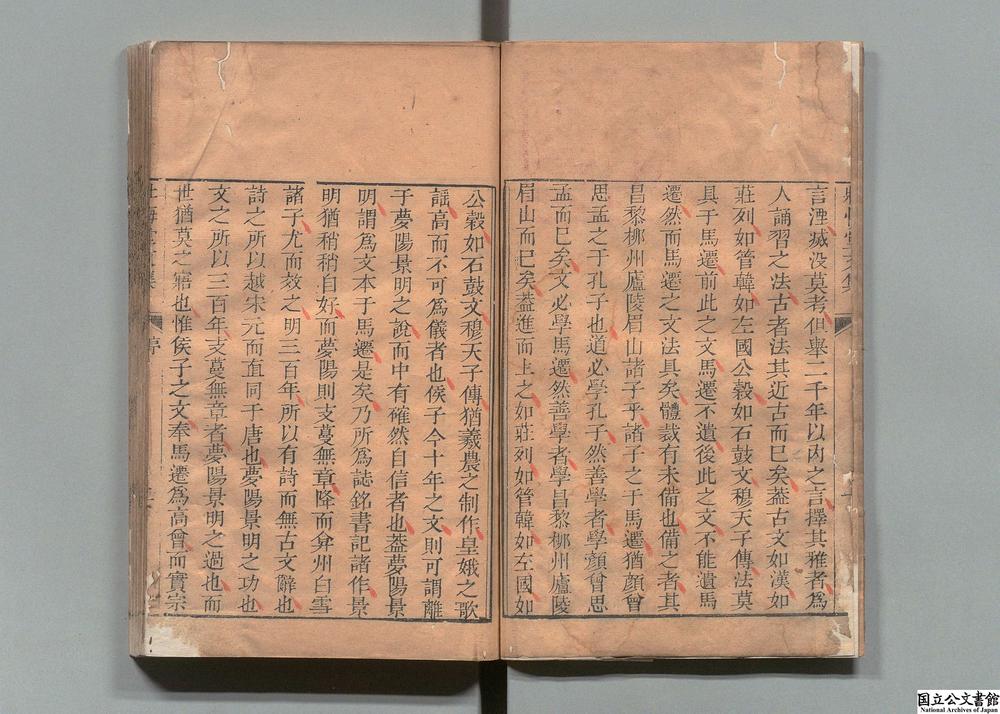 言湮滅没莫考但舉二千年以內之言擇其雅者為
人誦習之法古者法其近古而已矣葢古文如漢如
莊列如管韓如左國公糓如石鼓文穆天子傳法莫
具于馬遷前此之文馬遷不遺後此之文不能遺馬
遷然而馬遷之文法具矣體裁有未備也備之者其
昌黎栁州廬陵眉山諸子乎諸子之于馬遷猶顏曾
思孟之于孔子也道必學孔子然善學者學顏曾思
孟而已矣文必學馬遷然善學者學昌黎栁州廬陵
眉山而已矣葢進而上之如莊列如管韓如左國如
公糓如石鼓文穆天子傳猶羲農之制作皇娥之歌
謡高而不可為儀者也侯子今十年之文則可謂離
于夢陽景明之說而中有確然自信者也葢夢陽景
明謂為文本于馬遷是矣乃所為誌銘書記諸作景
明猶稍稍自好而夢陽則支蔓無章降而弇州白雪
諸子尤而效之明三百年所以有詩而無古文辭也
詩之所以越宋元而直同于唐也夢陽景明之功也
文之所以三百年支蔓無章者夢陽景明之過也而
世猶莫之寤也惟侯子之文奉馬遷為高曾而實宗
序
国立公文書館
National Archives of Japan